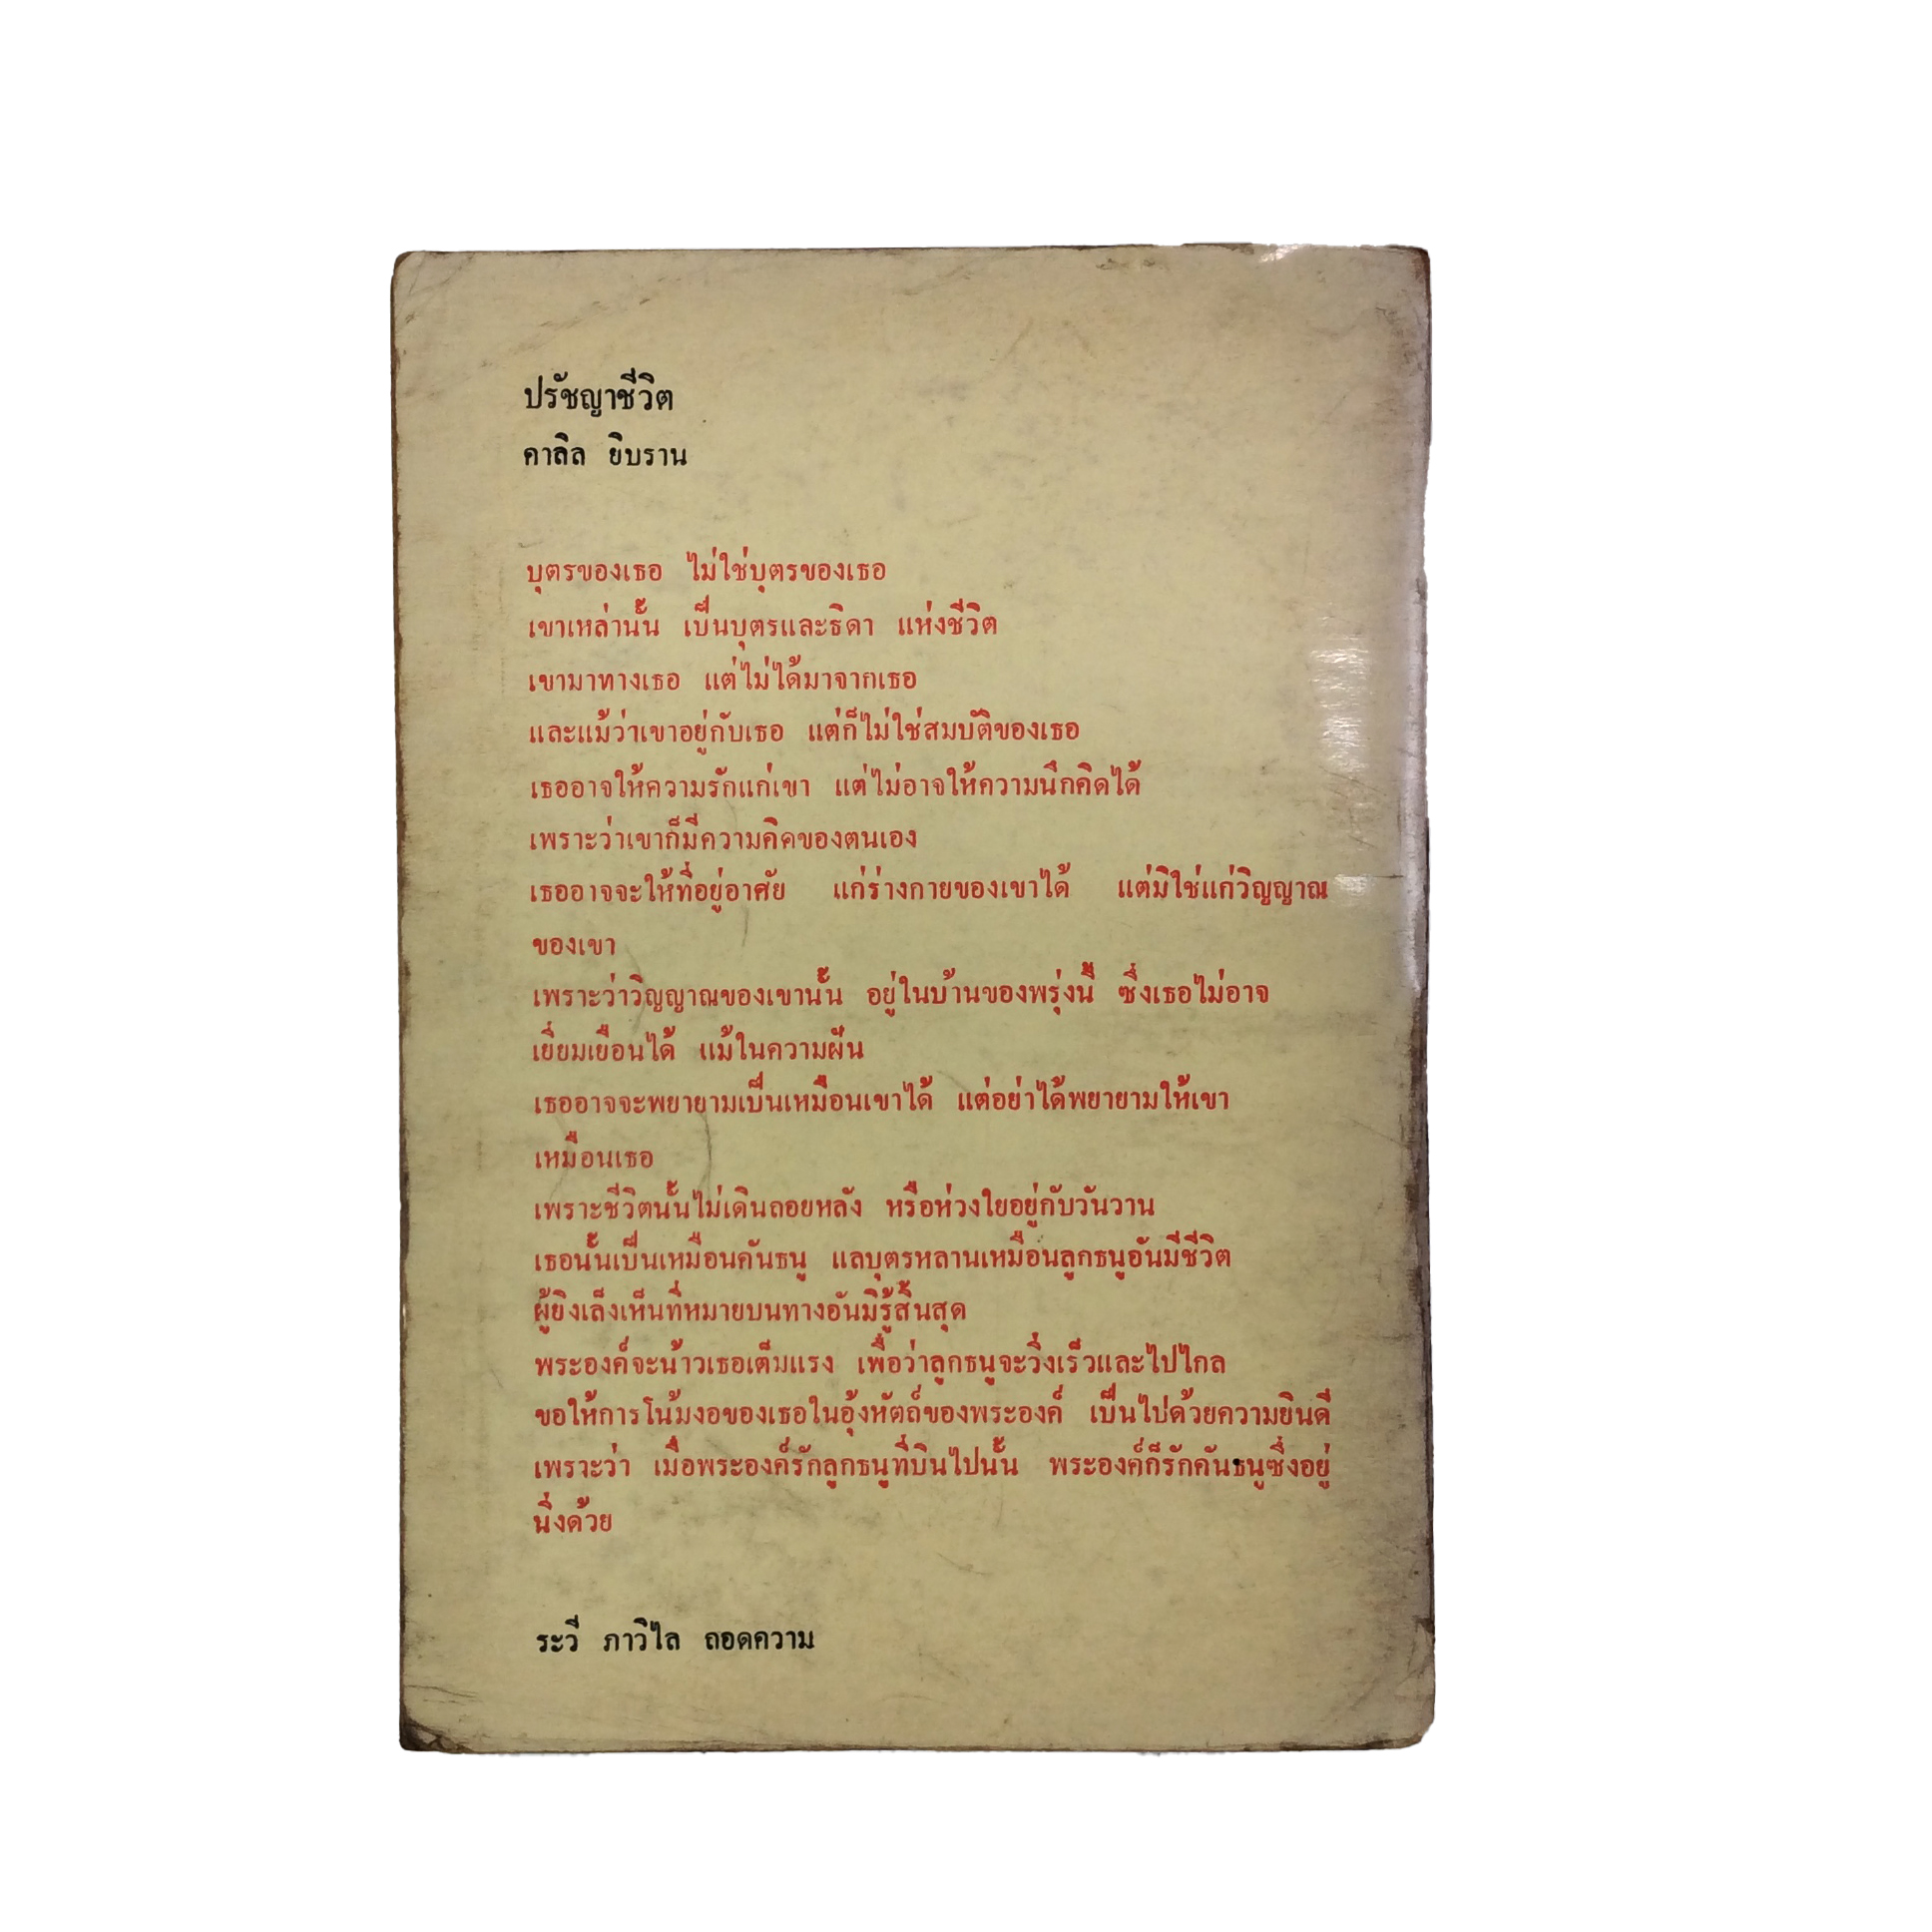 ปรัชญาชีวิต
คาลิล ยิบราน
บุตรของเธอ ไม่ใช่บุตรของเธอ
เขาเหล่านั้น เป็นบุตรและธิดา แห่งชีวิต
เขามาทางเธอ แต่ไม่ได้มาจากเธอ
และแม้ว่าเขาอยู่กับเธอ แต่ก็ไม่ใช่สมบัติของเธอ
เธออาจให้ความรักแก่เขา แต่ไม่อาจให้ความนึกคิดได้
เพราะว่าเขาก็มีความคิดของตนเอง
เธออาจจะให้ที่อยู่อาศัย แก่ร่างกายของเขาได้ แต่มิใช่แก่วิญญาณ
ของเขา
เพราะว่าวิญญาณของเขานั้น อยู่ในบ้านของพรุ่งนี้ ซึ่งเธอไม่อาจ
เยี่ยมเยือนได้ แม้ในความฝัน
เธออาจจะพยายามเป็นเหมือนเขาได้ แต่อย่าได้พยายามให้เขา
เหมือนเธอ
เพราะชีวิตนั้นไม่เดินถอยหลัง หรือห่วงใยอยู่กับวันวาน
เธอนั้นเป็นเหมือนคันธนู แลบุตรหลานเหมือนลูกธนูอันมีชีวิต
ผู้ยิงเล็งเห็นที่หมายบนทางอันมิรู้สิ้นสุด
พระองค์จะน้าวเธอเต็มแรง เพื่อว่าลูกธนูจะวิ่งเร็วและไปไกล
ขอให้การโน้มงอของเธอในอุ้งหัตถ์ของพระองค์ เป็นไปด้วยความยินดี
เพราะว่า เมื่อพระองค์รักลูกธนูที่บินไปนั้น พระองค์ก็รักคันธนูซึ่งอยู่
นิ่งด้วย
ระวี ภาวิไล ถอดความ